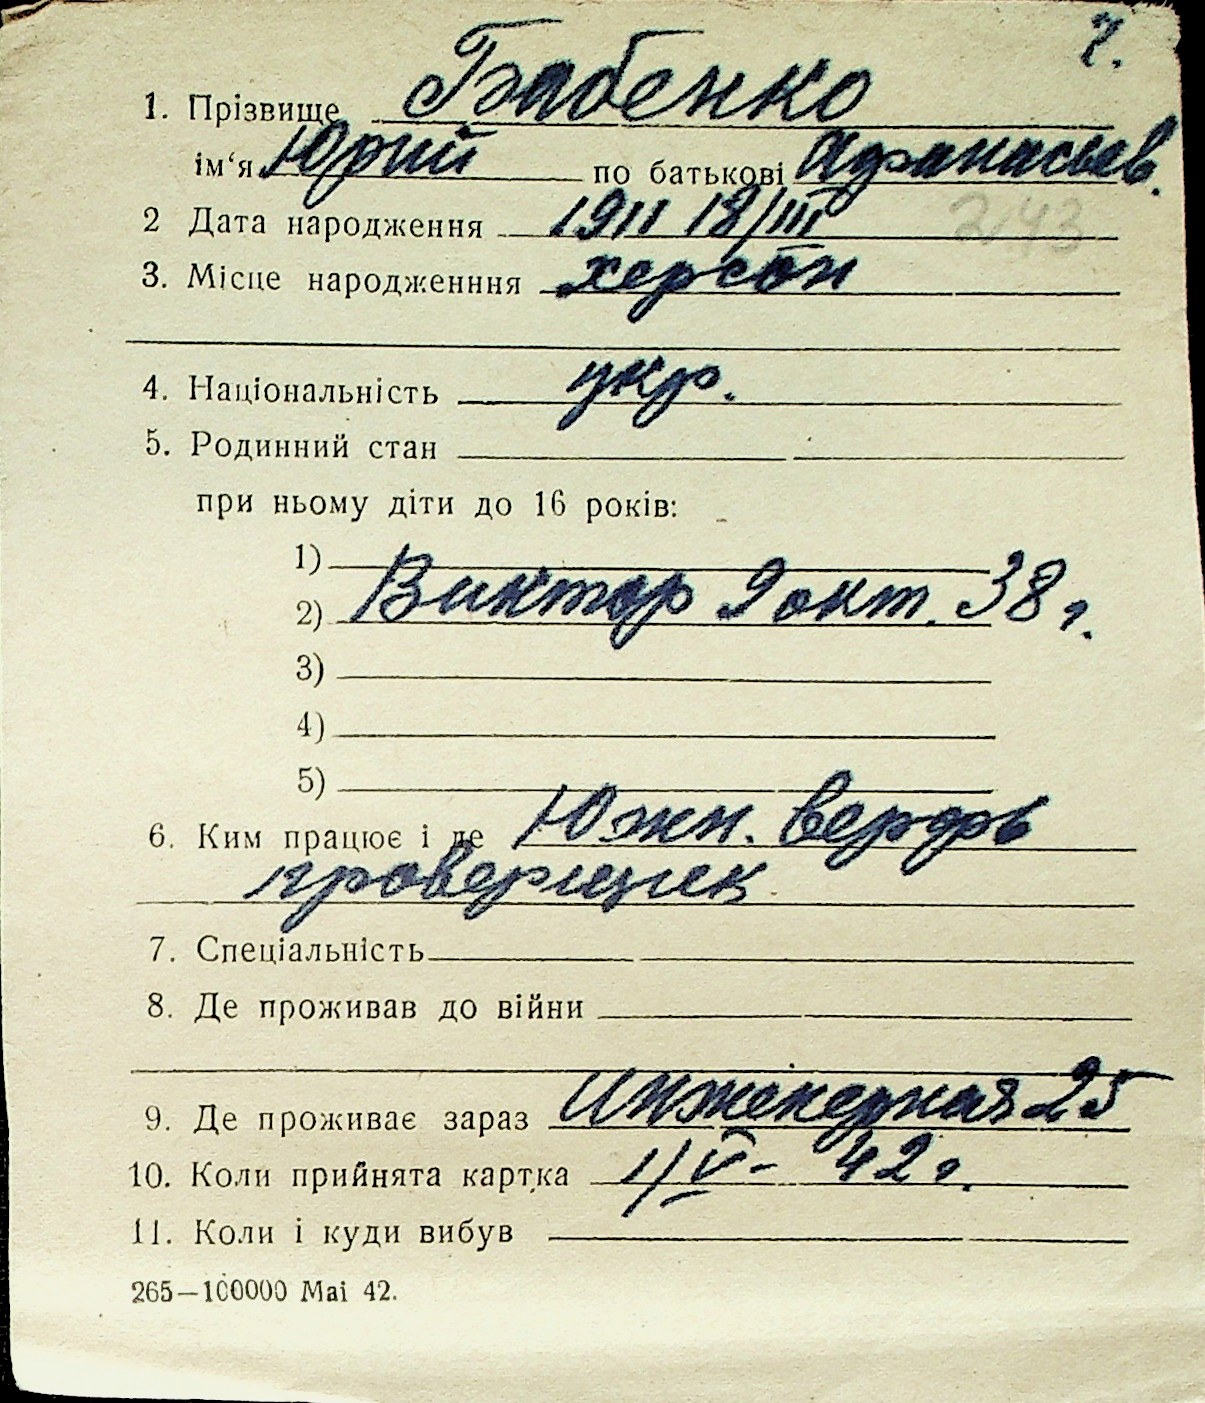 7.
1. Прізвище Бабенко
ім‘я Юрий по батькові Афанасьев.
2 Дата народження 1911 18/III
243
3. Місце народженння Херсон
4. Національність укр.
5. Родинний стан
при ньому діти до 16 років:
1)
2) Виктор 9 окт. 38 г.
3)
4)
5)
6. Ким працює і де Южн. верфь
проверщик
7. Спеціальність
8. Де проживав до війни
9. Де проживає зараз Инженерная 25
10. Коли прийнята картка 1/V - 42 г.
11. Коли і куди вибув
265—100000 Mai 42.